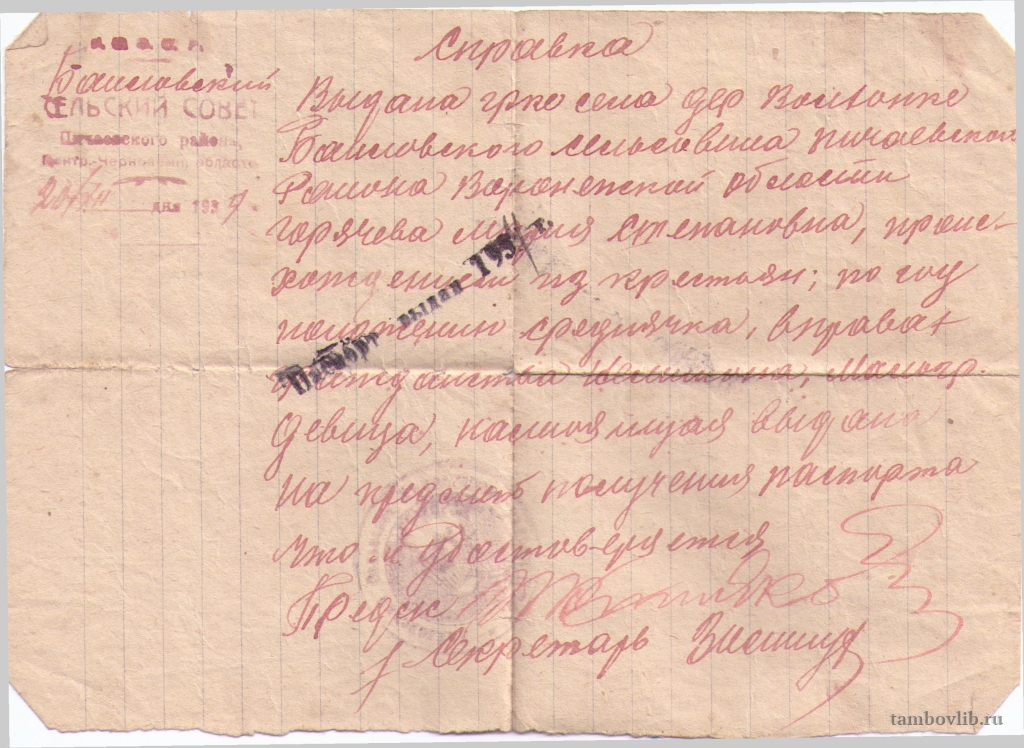 Р.С.Ф.С.Р.
Баиловский
СЕЛЬСКИЙ СОВЕТ
Пичаевского района,
Центр.-Чернозёмн. области
дня 193
Справка
Выдана гр-ке села дер
Баиловского сельсовета Пичаевского
Района Воронежской области
Горячева Мария Степановна, проис-
хождением из крестьян; по соц
положению середнячка, в правах
гражданства
девица, настоящая выдана
На предмет получения паспорта
что и удостоверяется
Паспорт выдан 193 г.
Предс
Секретарь
tambovlib.ru